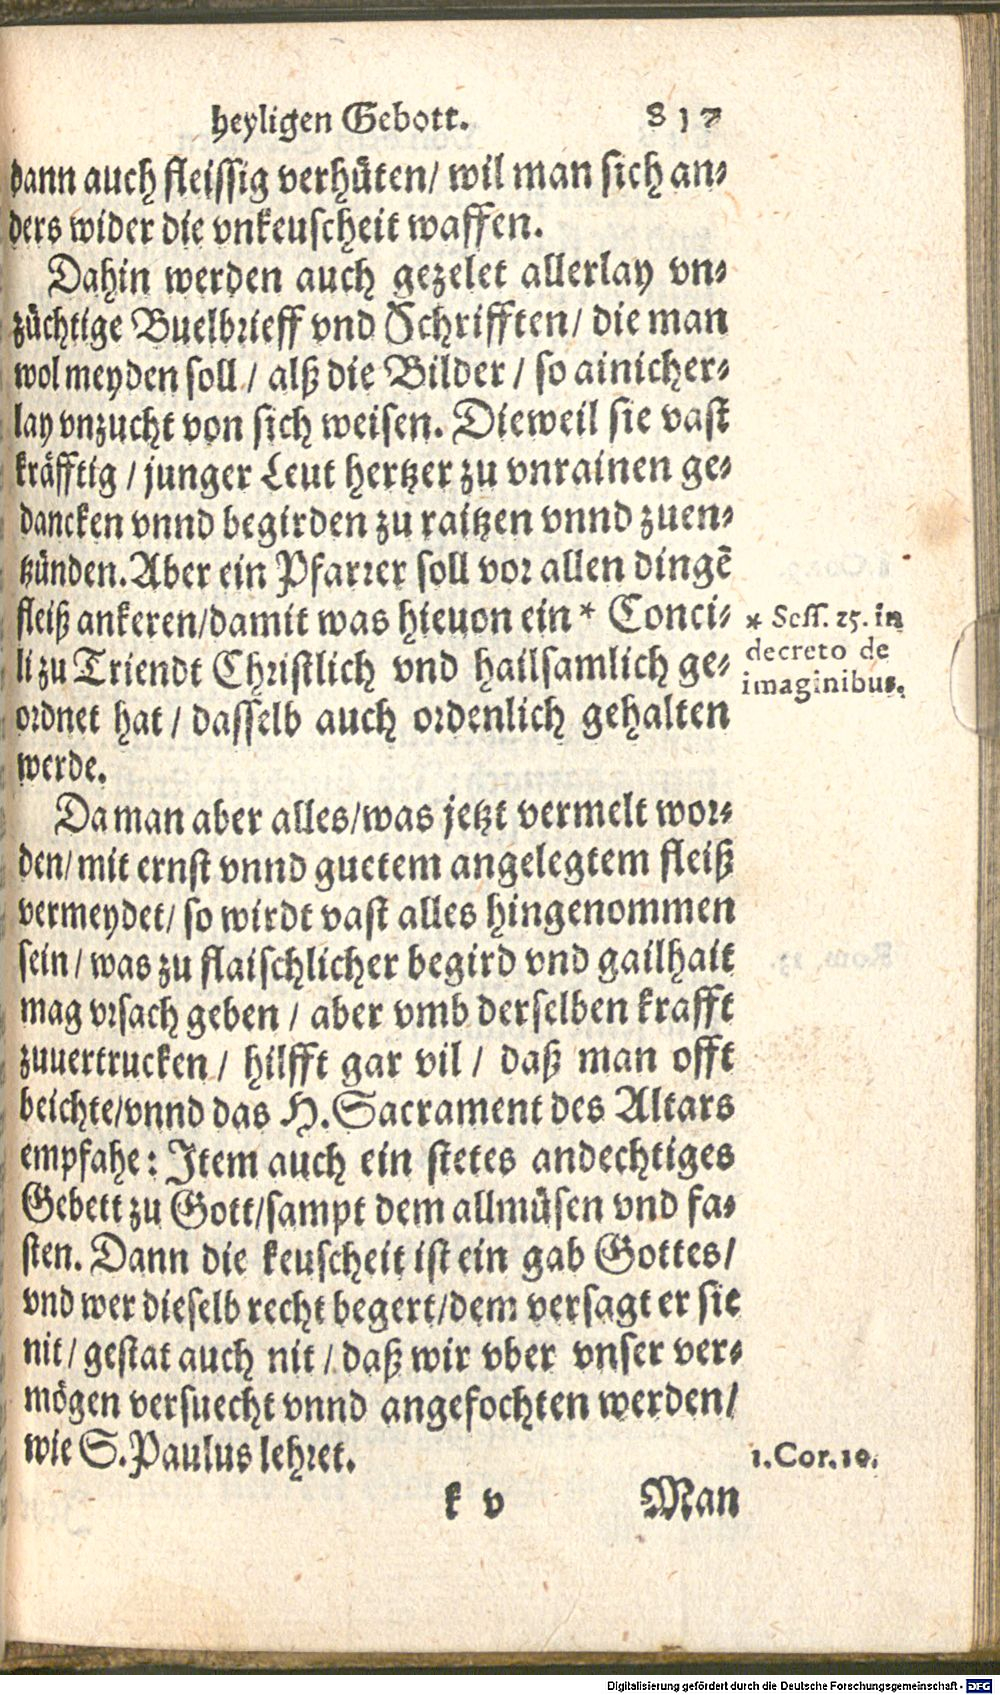 heyligen Gebott. 817
dann auch fleissig verhüten/ wil man sich an⸗
ders wider die vnkeuscheit waffen.
Dahin werden auch gezelet allerlay vn⸗
züchtige Buelbrieff vnd Schrifften/ die man
wol meyden soll / alß die Bilder / so ainicher⸗
lay vnzucht von sich weisen. Dieweil sie vast
kräfftig / junger Leut hertzer zu vnrainen ge⸗
dancken vnnd begirden zu raitzen vnnd zuen⸗
tzünden. Aber ein Pfarrer soll vor allen dingē
fleiß ankeren/damit was hieuon ein * Conci⸗
li zu Triendt Christlich vnd hailsamlich ge⸗
ordnet hat / dasselb auch ordenlich gehalten
werde.
* Sess. 25. in
decreto de
imaginibus.
Da man aber alles/was jetzt vermelt wor⸗
den/ mit ernst vnnd guetem angelegtem fleiß
vermeydet/ so wirdt vast alles hingenommen
sein / was zu flaischlicher begird vnd gailhait
mag vrsach geben / aber vmb derselben krafft
zuuertrucken / hilfft gar vil / daß man offt
beichte/vnnd das H. Sacrament des Altars
empfahe: Item auch ein stetes andechtiges
Gebett zu Gott/sampt dem allmüsen vnd fa⸗
sten. Dann die keuscheit ist ein gab Gottes/
vnd wer dieselb recht begert/dem versagt er sie
nit / gestat auch nit / daß wir vber vnser ver⸗
mögen versuecht vnnd angefochten werden/
wie S. Paulus lehret.
1. Cor. 10.
k v Man
Digitalisierung gefördert durch die Deutsche Forschungsgemeinschaft - DFG